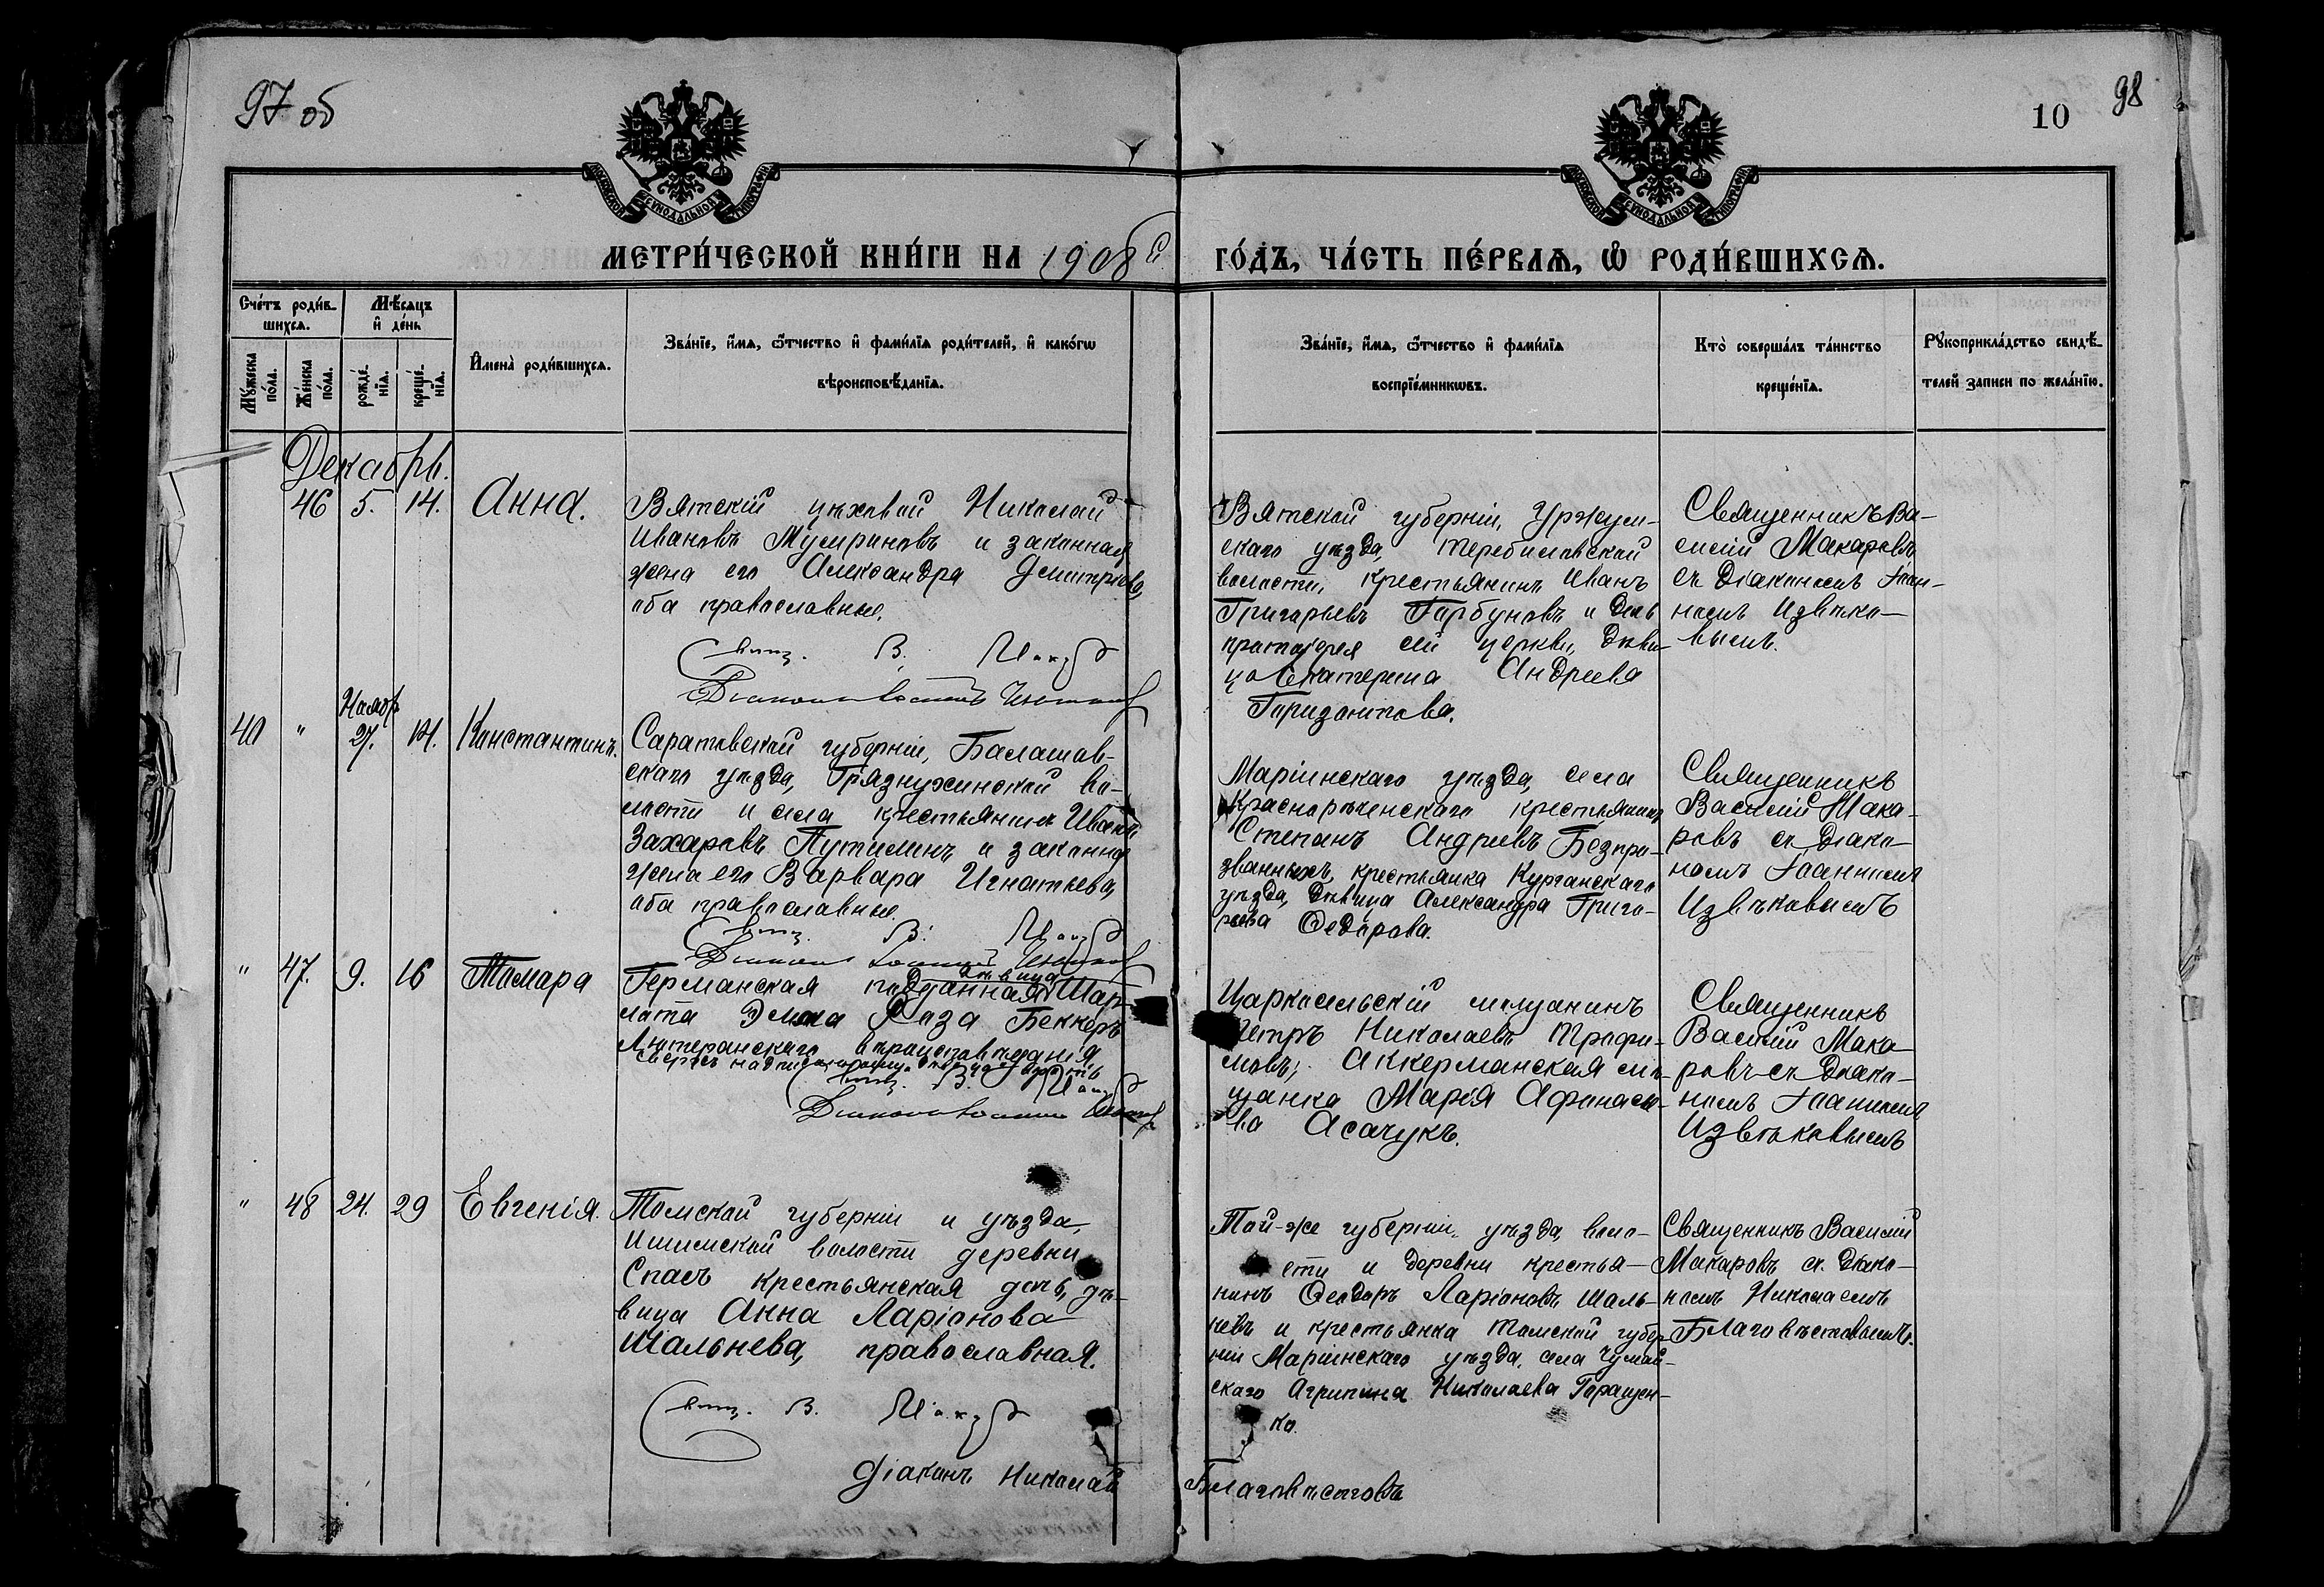 97 об
98
10
МЕТРИ́ЧЕСКОЙ КНИ́ГИ НА 1908й
ГО́ДЪ, ЧА́СТЬ ПЕ́РВАѦ, Ѡ҆ РОДИ́ВШИХСѦ.
Сче́тъ роди́в-
шихсѧ.
Мѣ́сяцъ
и҆ де́нь
Мꙋ́жеска по́ла.
Же́нска по́ла.
рожде́-
нїѧ.
креще́-
нїѧ.
И҆мена̀ роди́вшихсѧ.
Зва́нїе, и҆́мѧ, ѻ҆́тчество и҆ фами́лїѧ роди́телей, и҆ како́гѡ
вѣроисповѣ́данїѧ.
Зва́нїе, и҆́мѧ, ѻ҆́тчество и҆ фами́лїѧ
воспрїе́мникѡвъ.
Кто̀ соверша́лъ та́инство
креще́нїѧ.
Рꙋкоприкла́дство свидѣ́-
телей записи по жела́нїю.
Декабрь.
46 5. 14. Анна.
Вятскій цѣховой Николай
Ивановъ Мусириновъ и законная
жена его Александра Дмитріева,
оба православные.
Свящ. В. Макаров
Діаконъ Іоаннъ Извѣковъ
Вятской губерніи, Уржум-
скаго уѣзда, Теребиловской
волости, крестьянинъ Иванъ
Григорьевъ Горбуновъ и дочь
протоіерея сей церкви, дѣви-
ца Екатерина Андреева
Горизонтова.
Священникъ Ва-
силій Макаровъ
съ діакономъ Іоан-
номъ Извѣко-
вымъ.
40 " Ноябр 27. 14. Константинъ.
Саратовской губерніи, Балашов-
скаго уѣзда, Грязнухинской во-
лости и села крестьянинъ Иванъ
Захаровъ Путилинъ и законная
жена его Варвара Игнатьева,
оба православные.
Свящ. В. Макаров
Діаконъ Іоаннъ Извѣковъ
Маріинскаго уѣзда, села
Краснорѣченскаго крестьянинъ
Степанъ Андреевъ Безпро-
званныхъ, крестьянка Курганскаго
уѣзда, дѣвица Александра Григо-
рьева Ѳедорова.
Священникъ
Василій Мака-
ровъ съ діако-
номъ Іоанномъ
Извѣковымъ
" 47. 9. 16 Тамара
дѣвица
Германская подданная Шар-
лота Эмма Роза Беккеръ
Лютеранскаго вѣроисповѣданія
Свящ. В. Макаров
Діаконъ Іоаннъ Извѣковъ
Царкосельскій мѣщанинъ
Петръ Николаевъ Трофи-
мовъ; Аккерманская мѣ-
щанка Марія Афанасье-
ва Асачукъ.
Священникъ
Василій Мака-
ровъ съ діако-
номъ Іоанномъ
Извѣковымъ
" 48 24. 29 Евгенія.
Томской губерніи и уѣзда,
Ишимской волости деревни
Спасъ крестьянская дочь, дѣ-
вица Анна Ларіонова
Шальнева, православная.
Свящ. В. Макаров
Діаконъ Николай Благовѣстовъ
Той-же губерніи, уѣзда, воло-
сти и деревни крестья-
нинъ Ѳеодоръ Ларіоновъ Шаль-
невъ и крестьянка Томской губер-
ніи Маріинскаго уѣзда, села Чумай-
скаго Агрипина Николаева Геращен-
ко.
Священникъ Василій
Макаровъ съ діако-
номъ Николаемъ
Благовѣстовымъ.